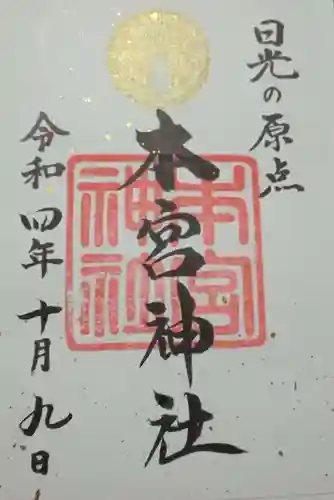 日光の原点
本宮神社
本宮
神社
令和四年十月九日